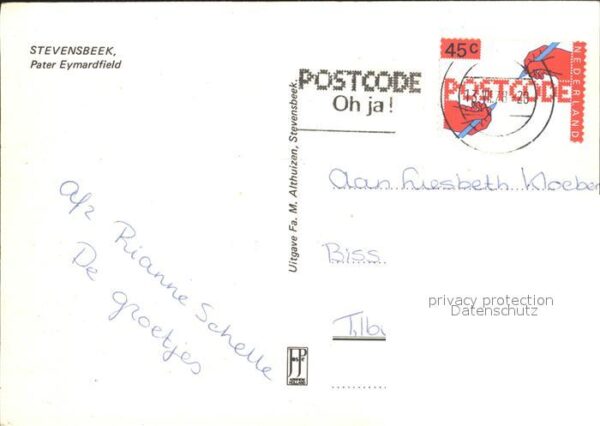 STEVENSBEEK,
Pater Eymardfield
45c
POSTCODE
NEDERLAND
POSTCODE
Oh ja!
Uitgave Fa. M. Althuizen, Stevensbeek.
Aan Liesbeth
Biss
Tilb
afz Rianne Schelle
De groetjes
privacy protection
Datenschutz